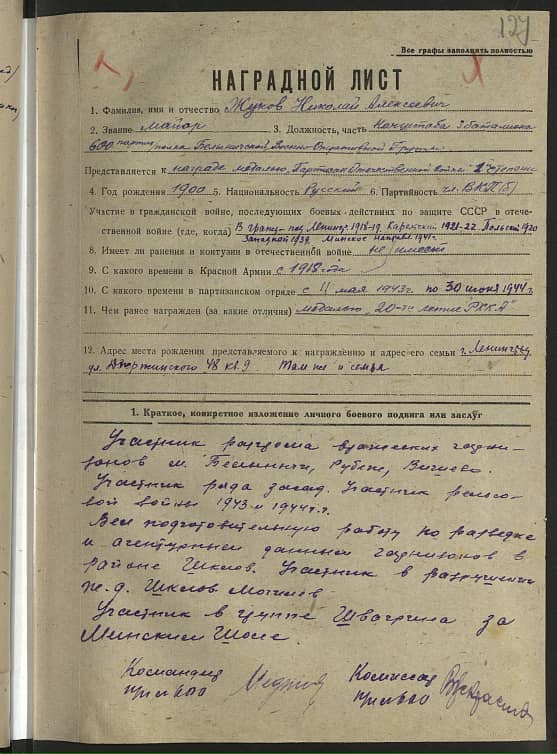 127
Все графы заполнять полностью
НАГРАДНОЙ ЛИСТ
1. Фамилия, имя и отчество Жуков Николай Алексеевич
2. Звание майор 3. Должность, часть Нач.штаба 3 батальона
600 партиз. полка Белыничской Военно-Оперативной Группы
Представляется к награде медалью „Партизан Отечественной войны" степени
4. Год рождения 1900 5. Национальность Русский 6. Партийность чл. ВКП(б)
Участие в гражданской войне, последующих боевых действиях по защите СССР в отече-
ственной войне (где, когда) В гражд. под Ленингр. 1918-19. Карельский 1921-22 Польский 1920
Западной 1939 Минское направл. 1941.
8. Имеет ли ранения и контузии в отечественной войне не имеет
9. С какого времени в Красной Армии с 1918 года
10. С какого времени в партизанском отряде с 11 мая 1943 г. по 30 июня 1944 г.
11. Чем ранее награжден (за какие отличия) медалью „20-ть летие РККА"
12. Адрес места рождения представляемого к награждению и адрес его семьи г. Ленинград
ул. Дзержинского 48 кв. 9 Там же и семья
1. Краткое, конкретное изложение личного боевого подвига или заслуг
Участник разгрома вражеских гарни-
зонов м. Белыничи,
Участник ряда засад. Участник рельсо-
вой войны 1943 и 1944 г.г.
Вел подготовительную работу по разведке
и агентурных данных гарнизонов в
районе Шклов. Участник в разрушении
ж.д. Шклов Могилев
Участник в группе за
Минским Шоссе.
Командир Комиссар
п-ка 600 п-ка 600